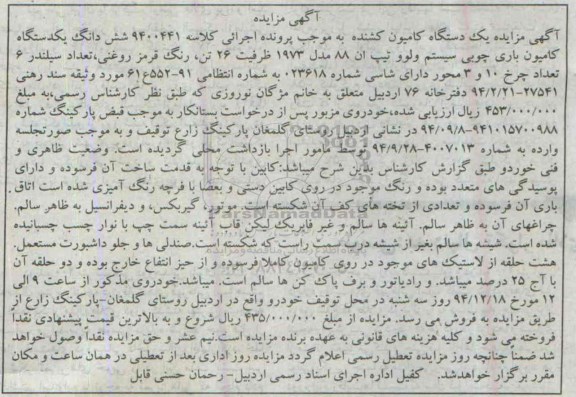 آگهی مزایده
آگهی مزایده یک دستگاه کامیون کشنده به موجب پرونده اجرائی کلاسه ۹۴۰۰۴۴۱ شش دانگ یکدستگاه
کامیون باری چوبی سیستم ولوو تیپ ان ۸۸ مدل ۱۹۷۳ ظرفیت ۲۶ تن، رنگ قرمز روغنی،تعداد سیلندر ۶
تعداد چرخ ۱۰ و ۳ محور دارای شاسی شماره ۰۲۳۶۱۸ به شماره انتظامی ۹۱-۵۵۲ع۶۱ مورد وثیقه سند رهنی
۲۷۵۴۱-۹۴/۲/۲۱ دفترخانه ۷۶ اردبیل متعلق به خانم مژگان نوروزی که طبق نظر کارشناس رسمی،به مبلغ
۴۵۳/۰۰۰/۰۰۰ ریال ارزیابی شده،خودروی مزبور پس از درخواست بستانکار به موجب قبض پارکینگ شماره
۹۴۱۰۱۵۷۰۰۹۸۸-۹۴/۰۹/۸ در نشانی اردبیل روستای گلمغان پارکینگ زارع توقیف و به موجب صورتجلسه
وارده به شماره ۴۰۰۷۰۱۳-۹۴/۹/۲۸ توسط مامور اجرا بازداشت محلی گردیده است. وضعیت ظاهری و
فنی خوردو طبق گزارش کارشناس بدین شرح میباشد:کابین با توجه به قدمت ساخت آن فرسوده و دارای
پوسیدگی های متعدد بوده و رنگ موجود در روی کابین دستی و بعضا با فرچه رنگ آمیزی شده است اتاق
باری آن فرسوده و تعدادی از تخته های کف آن شکسته است. موتور، گیربکس، و دیفرانسیل به ظاهر سالم.
چراغهای آن به ظاهر سالم. آئینه ها سالم و غیر فابریک لیکن قاب آئینه سمت چپ با نوار چسب چسبانیده
شده است. شیشه ها سالم بغیر از شیشه درب سمت راست که شکسته است.صندلی ها و جلو داشبورت مستعمل.
هشت حلقه از لاستیک های موجود در روی کامیون کاملا فرسوده و از حیز انتفاع خارج بوده و دو حلقه آن
با آج ۲۵ درصد میباشد. و رادیاتور و برف پاک کن ها سالم است. میباشد.خودروی مذکور از ساعت ۹ الی
۱۲ مورخ ۹۴/۱۲/۱۸ روز سه شنبه در محل توقیف خودرو واقع در اردبیل روستای گلمغان-پارکینگ زارع از
طریق مزایده به فروش می رسد. مزایده از مبلغ ۴۳۵/۰۰۰/۰۰۰ ریال شروع و به بالاترین قیمت پیشنهادی نقداً
فروخته می شود و کلیه هزینه های قانونی به عهده برنده مزایده است.نیم عشر و حق مزایده نقداً وصول خواهد
شد ضمناً چنانچه روز مزایده تعطیل رسمی اعلام گردد مزایده روز اداری بعد از تعطیلی در همان ساعت و مکان
مقرر برگزار خواهدشد. کفیل اداره اجرای اسناد رسمی اردبیل- رحمان حسنی قابل